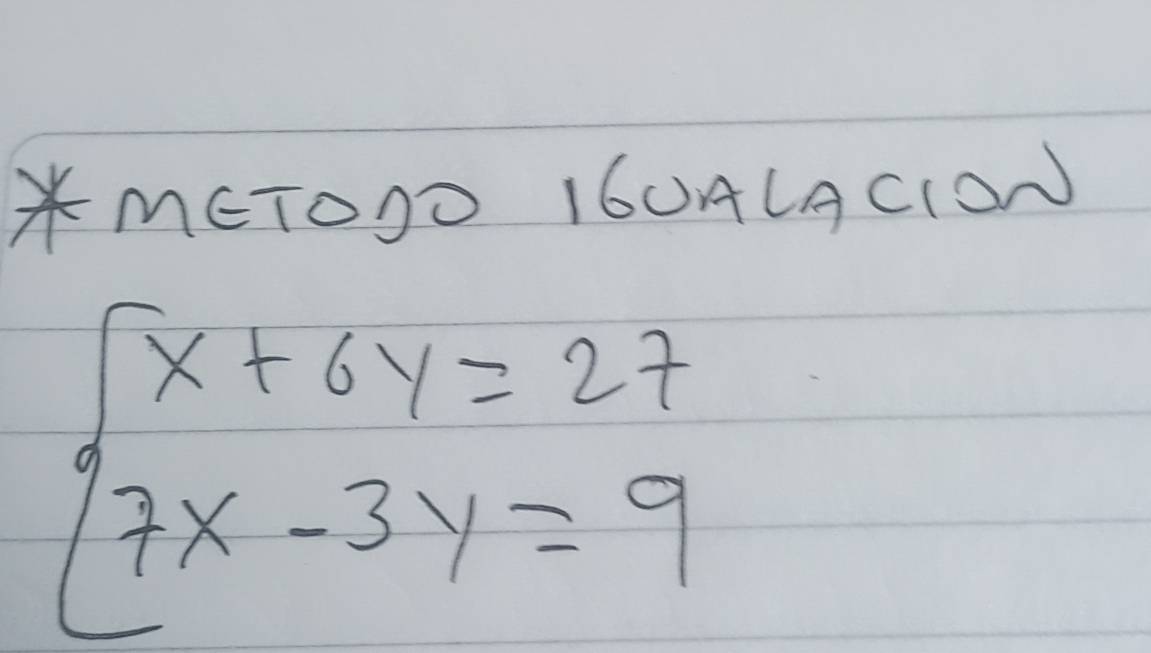 * METODO IGUALACION
x + 6y = 27
7x - 3y = 9